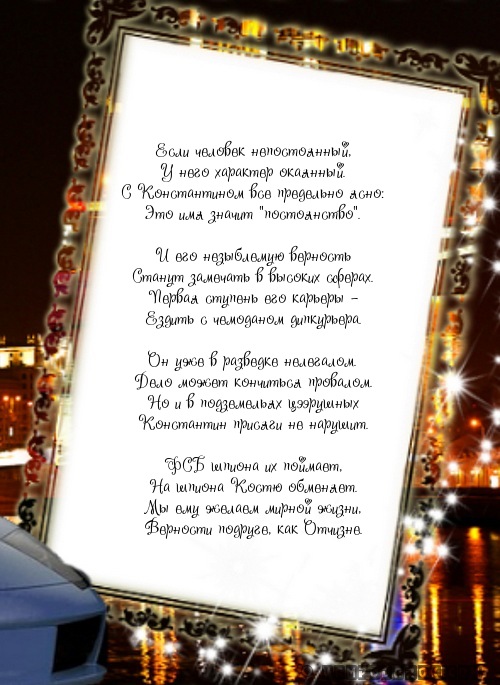 Если человек непостоянный,
У него характер окаянный.
С Константином все предельно ясно:
Это имя значит "постоянство".
И его незыблемую верность
Станут замечать в высоких сферах.
Первая ступень его карьеры –
Ездить с чемоданом дипкурьера.
Он уже в разведке нелегалом.
Дело может кончиться провалом.
Но и в подземельях цээрушных
Константин присяги не нарушит.
ФСБ шпиона их поймает,
На шпиона Костю обменяет.
Мы ему желаем мирной жизни,
Верности подруге, как Отчизне.